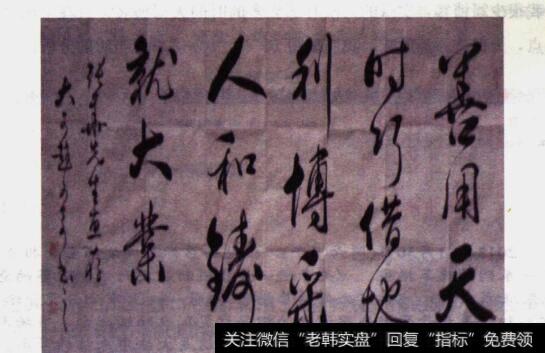 善用天
时巧借地
利博采
人和铸
就大業
先生惠存
关注微信“老韩实盘”回复“指标”免费领